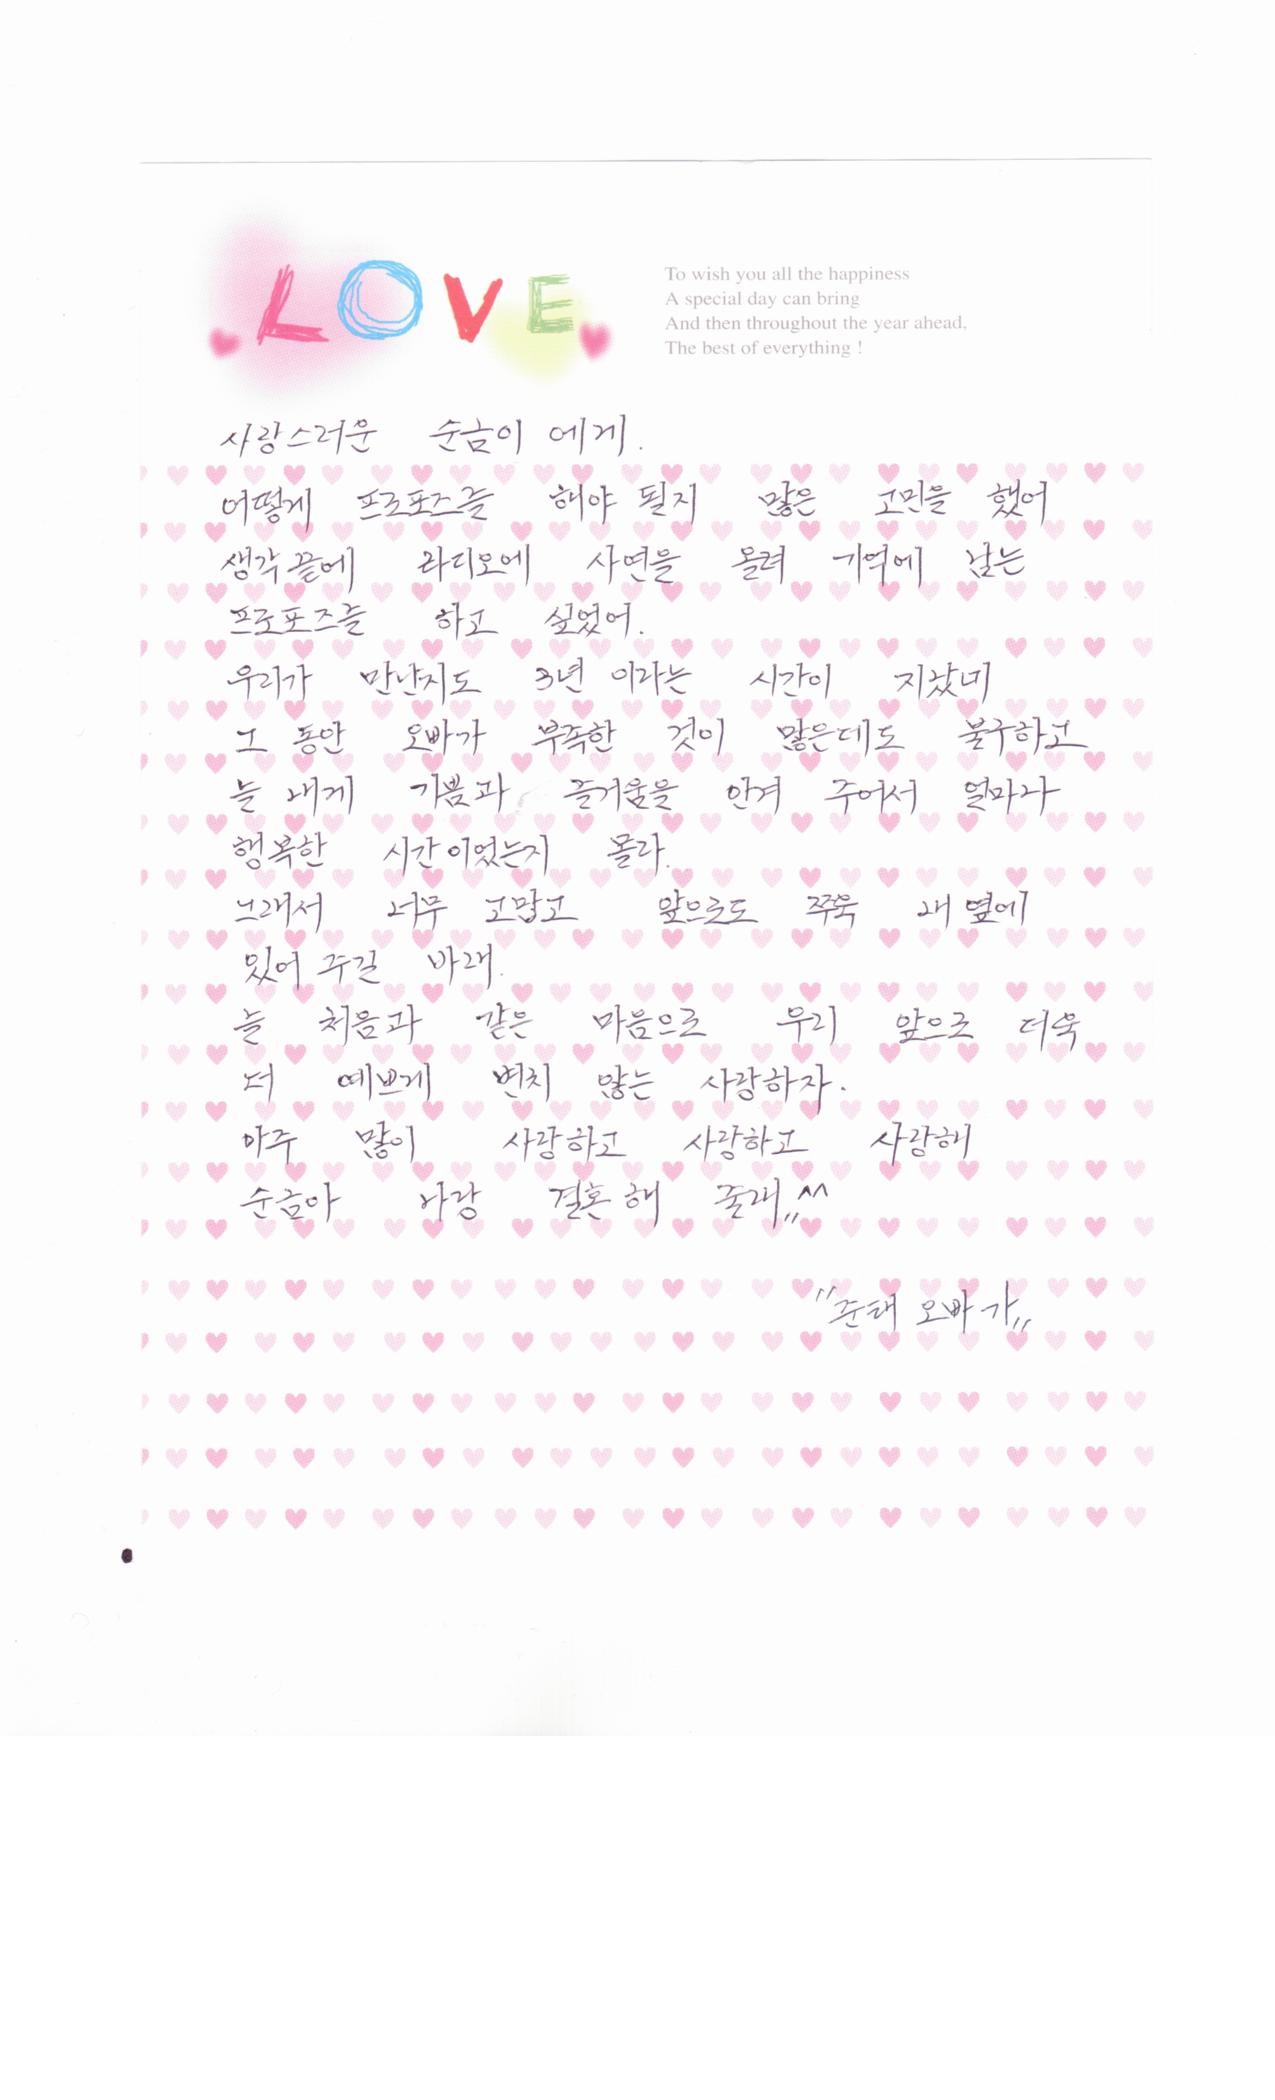 LOVE
To wish you all the happiness
A special day can bring
And then throughout the year ahead,
The best of everything !
사랑스러운 순금이 에게.
어떻게 프로포즈를 해야 될지 많은 고민을 했어
생각 끝에 라디오에 사연을 올려 기억에 남는
프로포즈를 하고 싶었어.
우리가 만난지도 3년 이라는 시간이 지났네
그 동안 오빠가 부족한 것이 많은데도 불구하고
늘 내게 기쁨과 즐거움을 안겨 주어서 얼마나
행복한 시간이었는지 몰라.
그래서 너무 고맙고 앞으로도 쭈욱 내 옆에
있어 주길 바래.
늘 처음과 같은 마음으로 우리 앞으로 더욱
더 예쁘게 변치 않는 사랑하자.
아주 많이 사랑하고 사랑하고 사랑해
순금아 나랑 결혼 해 줄래,, ^^
"준태 오빠 가,,